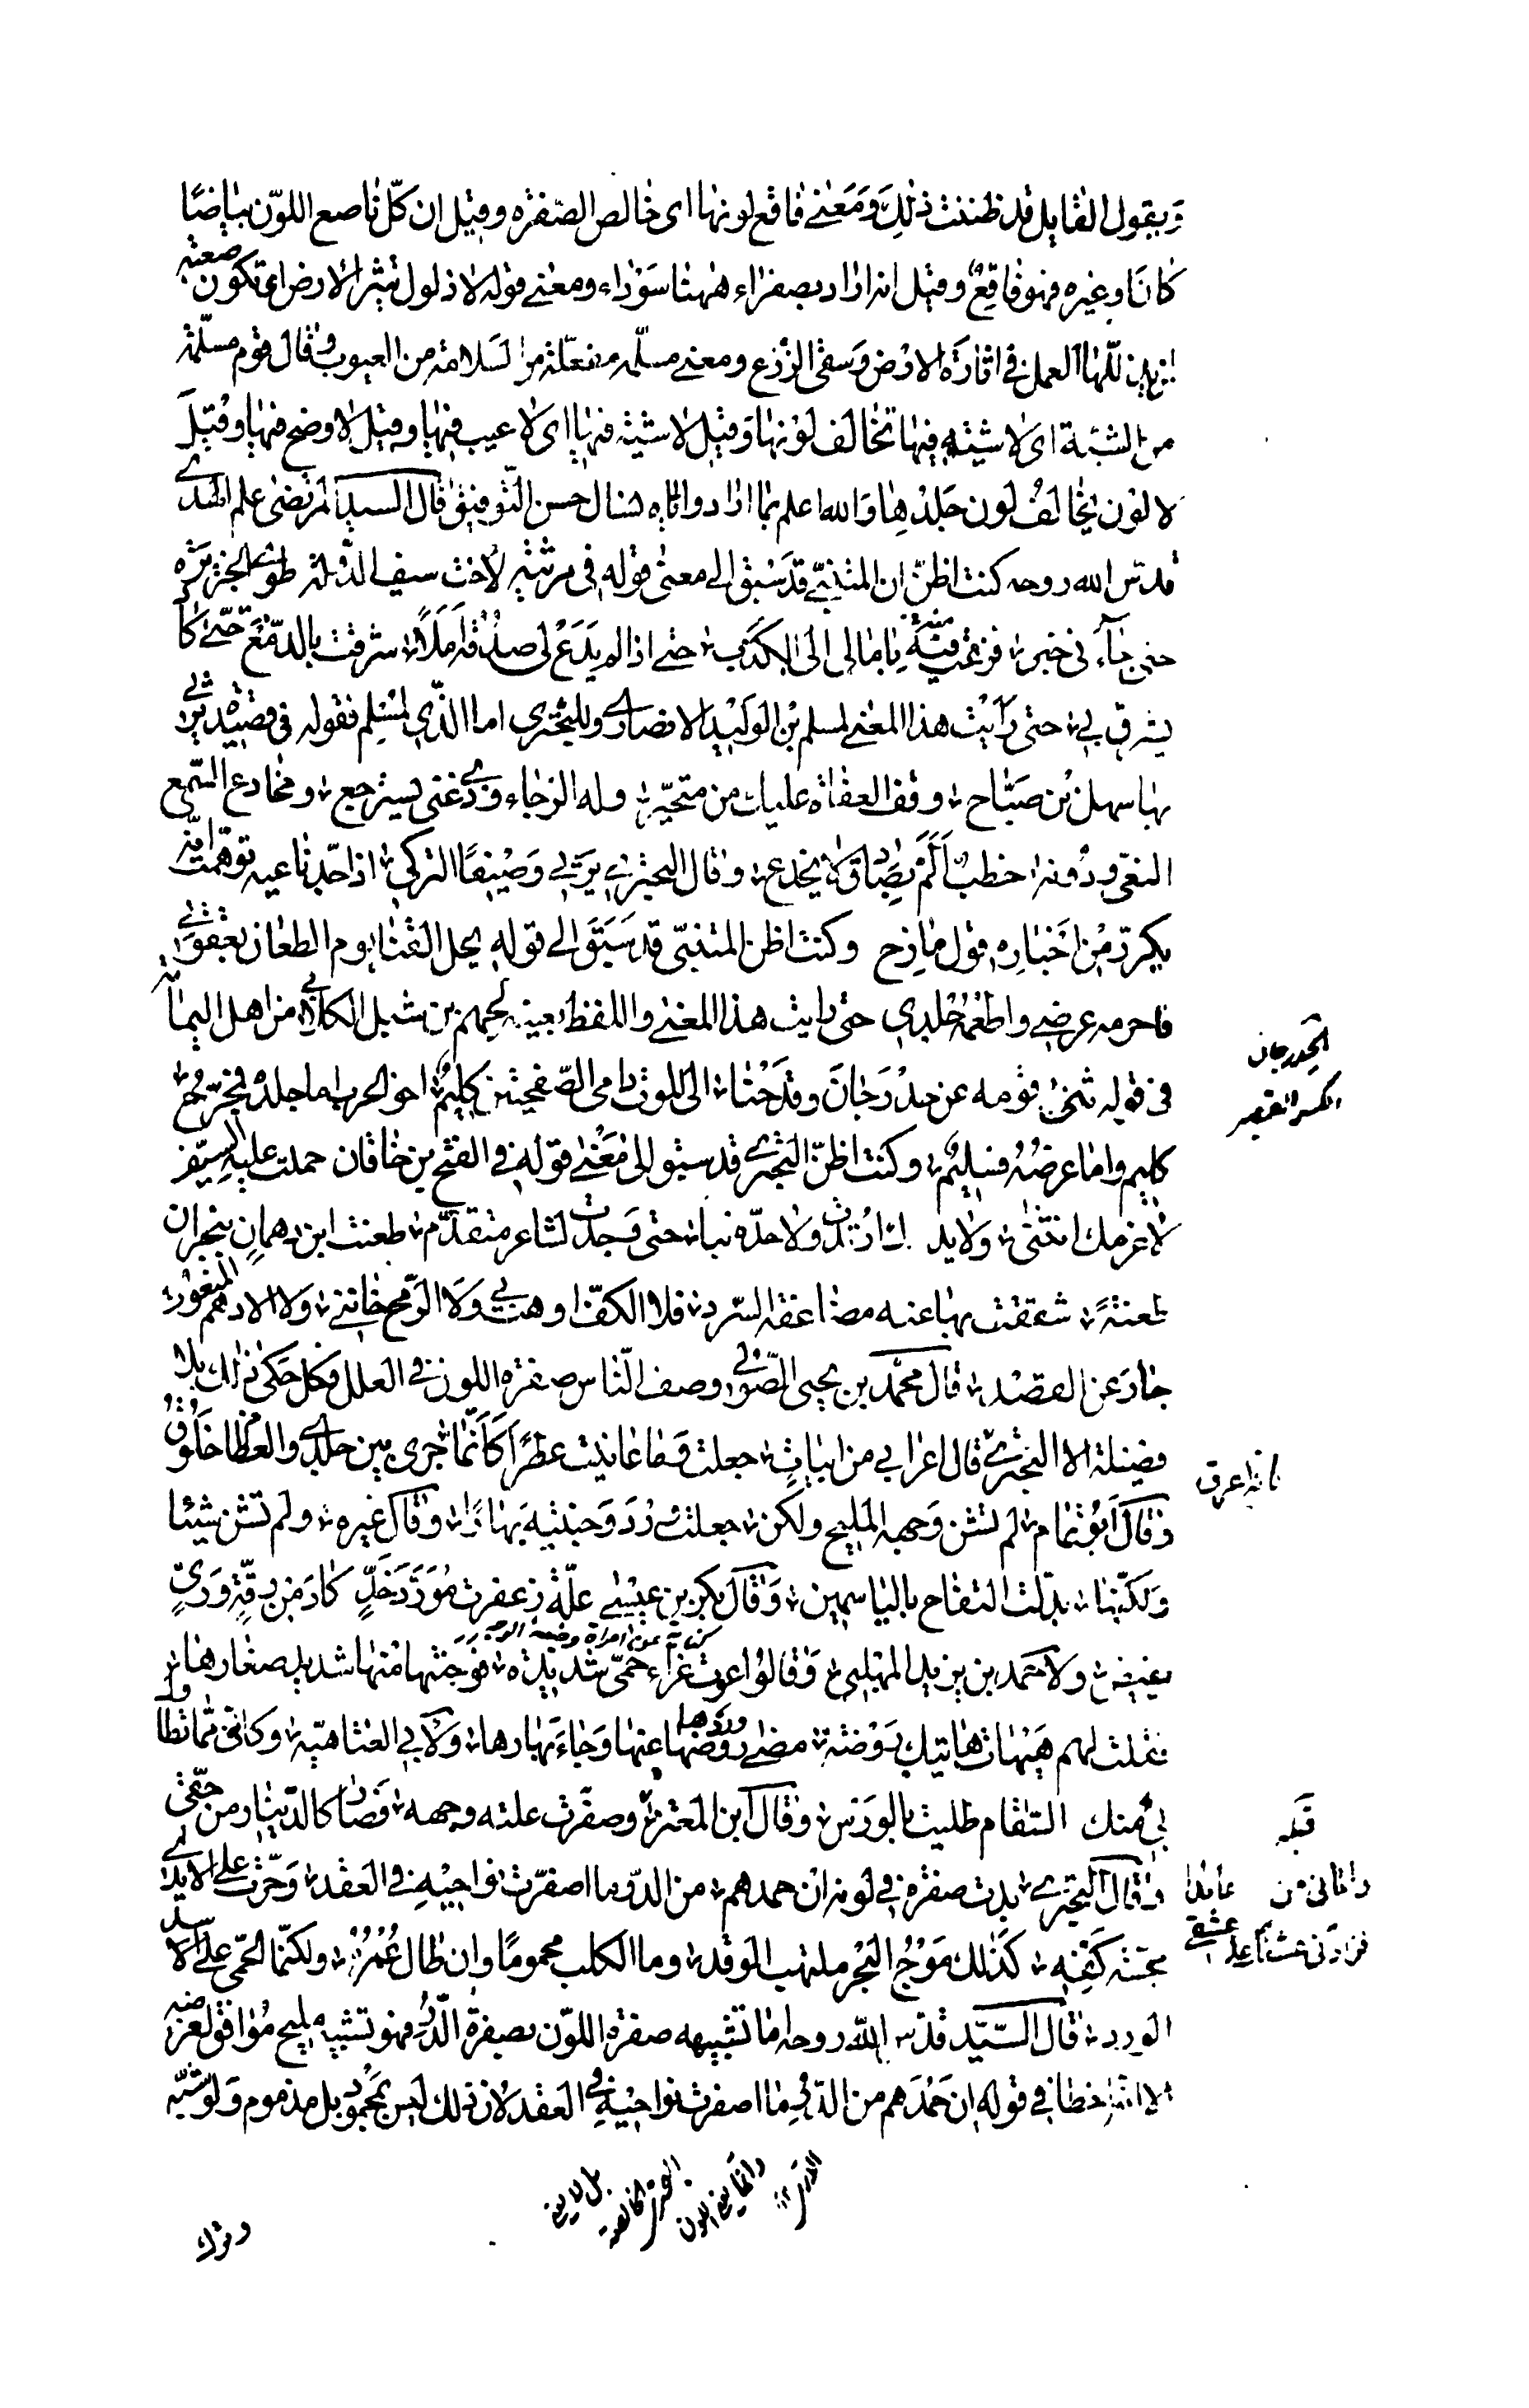 ويقول القايل قد ظننت ذلك ومعنى فاقع لونها اى خالص الصفرة وقيل ان كل ناصع اللون بياضا
كان او غيره فهو فاقع وقيل انه اراد بصفراء ههنا سوداء ومعنى قوله لا ذلول تثير الارض اى تكون صعبة
لا يذللها العمل فى اثارة الارض وسقى الزرع ومعنى مسلمة مفعلة من السلامة من العيوب وقال قوم مسلمة
من الشية اى لا شية فيها تخالف لونها وقيل لا شية فيها اى لا عيب فيها وقيل لا وضح فيها وقيل
لا لون يخالف لون جلدها والله اعلم بما اراد واياه نسال حسن التوفيق قال السيد المرتضى علم الهدى
قدس الله روحه كنت اظن ان المتنبى قد سبق الى معنى قوله فى مرثيته لاخت سيف الدولة طوى الجزيرة
حتى جاءنى خبر فزعت فيه بامالى الى الكذب حتى اذا لم يدع لى صدقه املا شرقت بالدمع حتى كاد
يشرق بى حتى رايت هذا المعنى لمسلم بن الوليد الانصارى وللبحترى اما الذى لمسلم فقوله فى قصيدة يرثى
بها سهل بن صباح وقف العفاة عليك من متحير وله الرجاء وذى غنى يسترجع ومخادع السمع
النعى ودونه خطب الم بصادق لا يخدع وقال البحترى يرثى وصيفا التركى اذا جد ناعيه توهمت انه
يكرر من اخباره قول مازح وكنت اظن المتنبى قد سبق الى قوله يحل القنا يوم الطعان بعقوتى
فاحرمه عرضى واطعمه جلدى حتى رايت هذا المعنى واللفظ بعينه لجهم بن شبل الكلابى من اهل اليمامة
فى قوله ثنى قومه عن حدرجان وقد حنا الى الموت دامى الصفحتين كليم اخو الحرب اما جلده فمجرح
كليم واما عرضه فسليم وكنت اظن البحترى قد سبق الى معنى قوله فى الفتح بن خاقان حملت عليه السيف
لا عزمك انثنى ولا يدك ارتدت ولا حده نبا حتى وجدت لشاعر متقدم طعنت ابن دهمان بنجران
طعنة شققت بها عنه مضاعفة السرد فلا الكف اوهت بى ولا الرمح خاننى ولا الادهم المنعوت
جار عن القصد قال محمد بن يحيى الصولى وصف الناس صفرة اللون فى العلل فكل حكى ذلك بلا
فضيلة الا البحترى قال اعرابى من ابيات جعلت وما عاينت عطرا كانما جرى بين جلدى والعظام خلوق
وقال ابو تمام لم تشن وجهه المليح ولكن جعلت ورد وجنتيه بهارا وقال غيره ولم تشن شيئا
ولكنها بدلت التفاح بالياسمين وقال بكر بن عيسى علة زعفرت مورد خد كاد من رقة ورى
يفيض ولاحمد بن يزيد المهلبى وقالوا عرت غراء حمى شديدة فوجنتها منها شديد صفارها
كناية عن امراة وضيئة الوجه
فقلت لهم هيهات هاتيك روضة مضى وردها عنها وجاء بهارها ولابى العتاهية وكاننى مما تطاول
بى منك السقام طليت بالورس وقال ابن المعتز وصفرت علته وجهه فصار كالدينار من حقى
وقال البحترى بدت صفرة فى لونه ان حمدهم من الدر ما اصفرت نواحيه فى العقد وحرت على الايدى
مجسة كفه كذلك موج البحر ملتهب الوقد وما الكلب محموما وان طال عمره ولكنما الحمى على الاسد
الورد قال السيد قدس الله روحه اما تشبيهه صفرة اللون بصفرة الدر فهو تشبيه مليح موافق لغرضه
الا انه اخطا فى قوله ان حمدهم من الدر ما اصفرت نواحيه فى العقد لان ذلك ليس بمحمود بل مذموم ولو شبه
الحدرجان
القصير
قبله